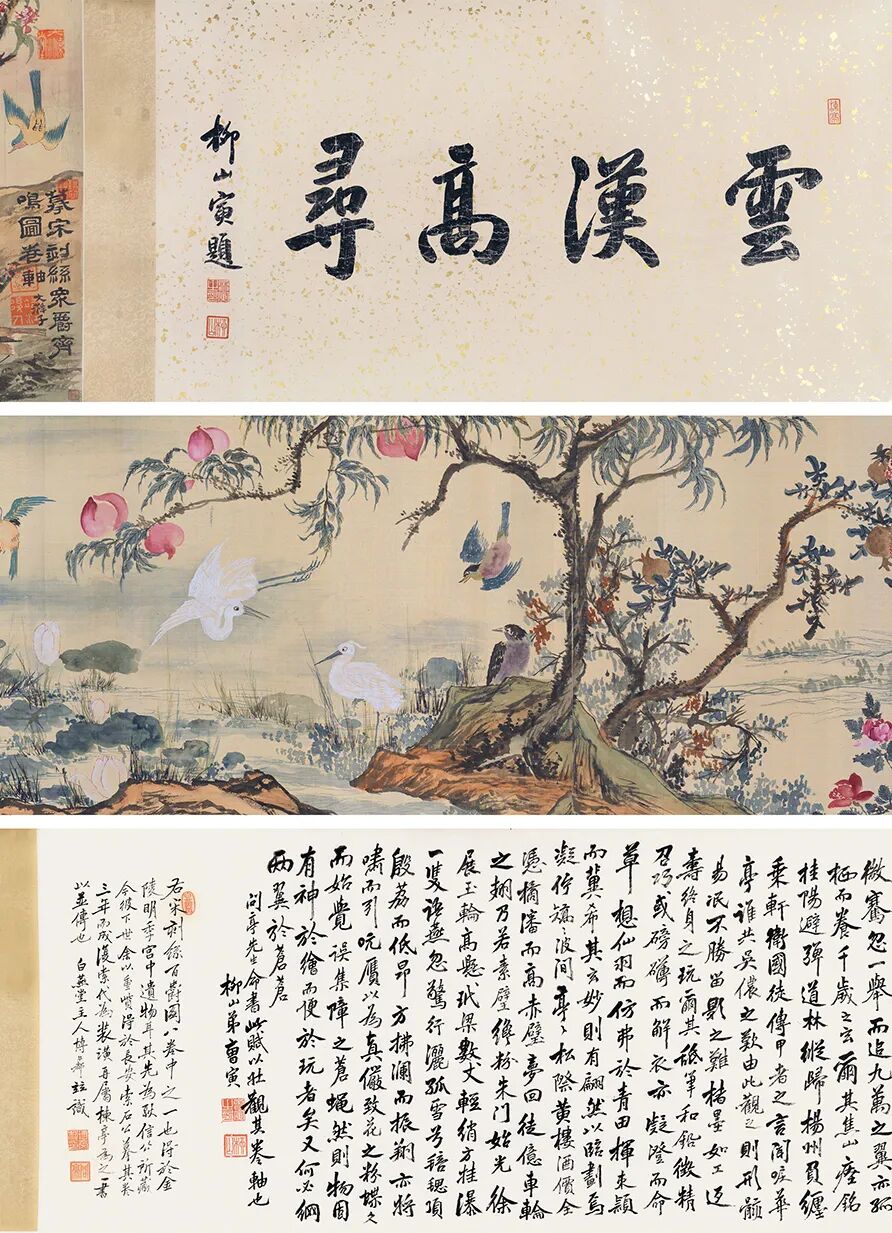 雲漢高尋
柳山寅題
摹宋刻絲眾爵齊
鳴圖卷軸
大滌子
微騫忽一舉而追九萬之翼亦孤
栖而養千歲之玄爾其焦山瘞銘
桂陽避彈道林縱歸楊州負纏
乘軒衛國徒傳甲者之言聞唳華
亭誰共吳儂之歎由此觀之則形骸
易泯不勝留影之難楮墨如工迺
壽終身之玩爾其舐筆和鉛微精
召巧或磅礴而解衣亦凝澄而命
草想仙羽而仿弗於青田揮束穎
而冀希其玄妙則有翩然以臨劃焉
凝佇波間亭〻松際黃樓酒價全
憑橘瀋而高赤壁夢回徒億車輪
之翅乃若素壁纔粉朱門始光徐
展玉輪高懸玳梁數丈輕綃方挂瀑
一雙詭燕忽驚行灑孤雪兮項
殷荔而低昂方拂瀾而振翔亦將
嘯而引吭贗以為真儼致花之粉蝶久
而始覺誤集障之蒼蠅然則物固
有神於繪而便於玩者矣又何必網
兩翼於蒼蒼
問亭先生命書此賦以壯觀其卷軸也
柳山弟曹寅
右宋刻絲百爵圖八卷中之一也得於金
陵明季宮中遺物耳其先為信公所藏
今彼下世余以重貲得於長安索石公摹其
三年而成復索代為裝潢再屬楝亭為之一書
以並傳也 白燕堂主人博爾都識